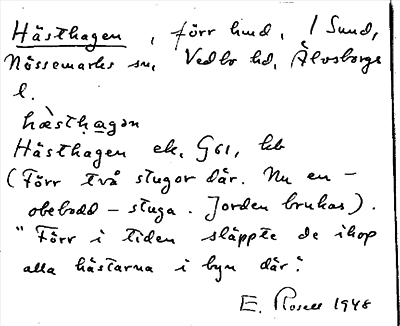 Hästhagen, förr lmd, i Sund,
Nössemarks sn, Vedbo hd, Älvsborgs
l.
hæ̀stha̱gən
Hästhagen ek. G61, hb
(Förr två stugor där. Nu en –
obebodd – stuga. Jorden brukas).
"Förr i tiden släppte de ihop
alla hästarna i byn där".
E. Rosell 1948